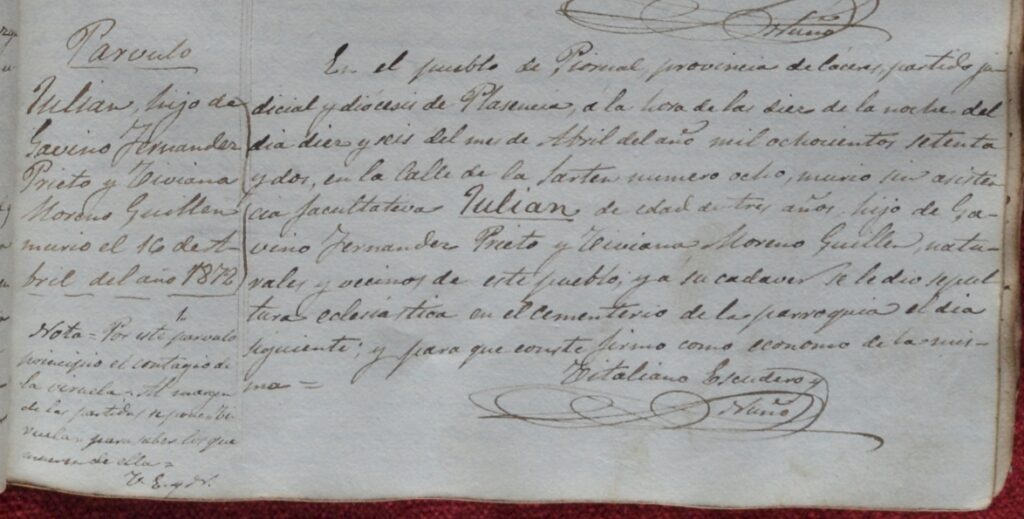 Nuño
Parvulo
Julian, hijo de
Gavino Fernandez
Prieto y Viviana
Moreno Guillen
murio el 16 de A-
bril del año 1872
Nota = Por este parvulo
principió el contagio de
la viruela = Al margen
de las partidas se pone Vi-
ruela para saber los que
mueren de ella =
V. E. y N.
En el pueblo de Piornal, provincia de Cáceres, partido ju-
dicial y diócesis de Plasencia, á la hora de las diez de la noche del
dia diez y seis del mes de Abril del año mil ochocientos setenta
y dos, en la Calle de la Sarten numero ocho, murio sin asisten-
cia facultativa Julian de edad de tres años, hijo de Ga-
vino Fernandez Prieto y Viviana Moreno Guillen, natu-
rales y vecinos de este pueblo, y a su cadaver se le dio sepul-
tura eclesiástica en el cementerio de la parroquia el dia
siguiente; y para que conste firmo como economo de la mis-
ma =
Vitaliano Escudero y
Nuño